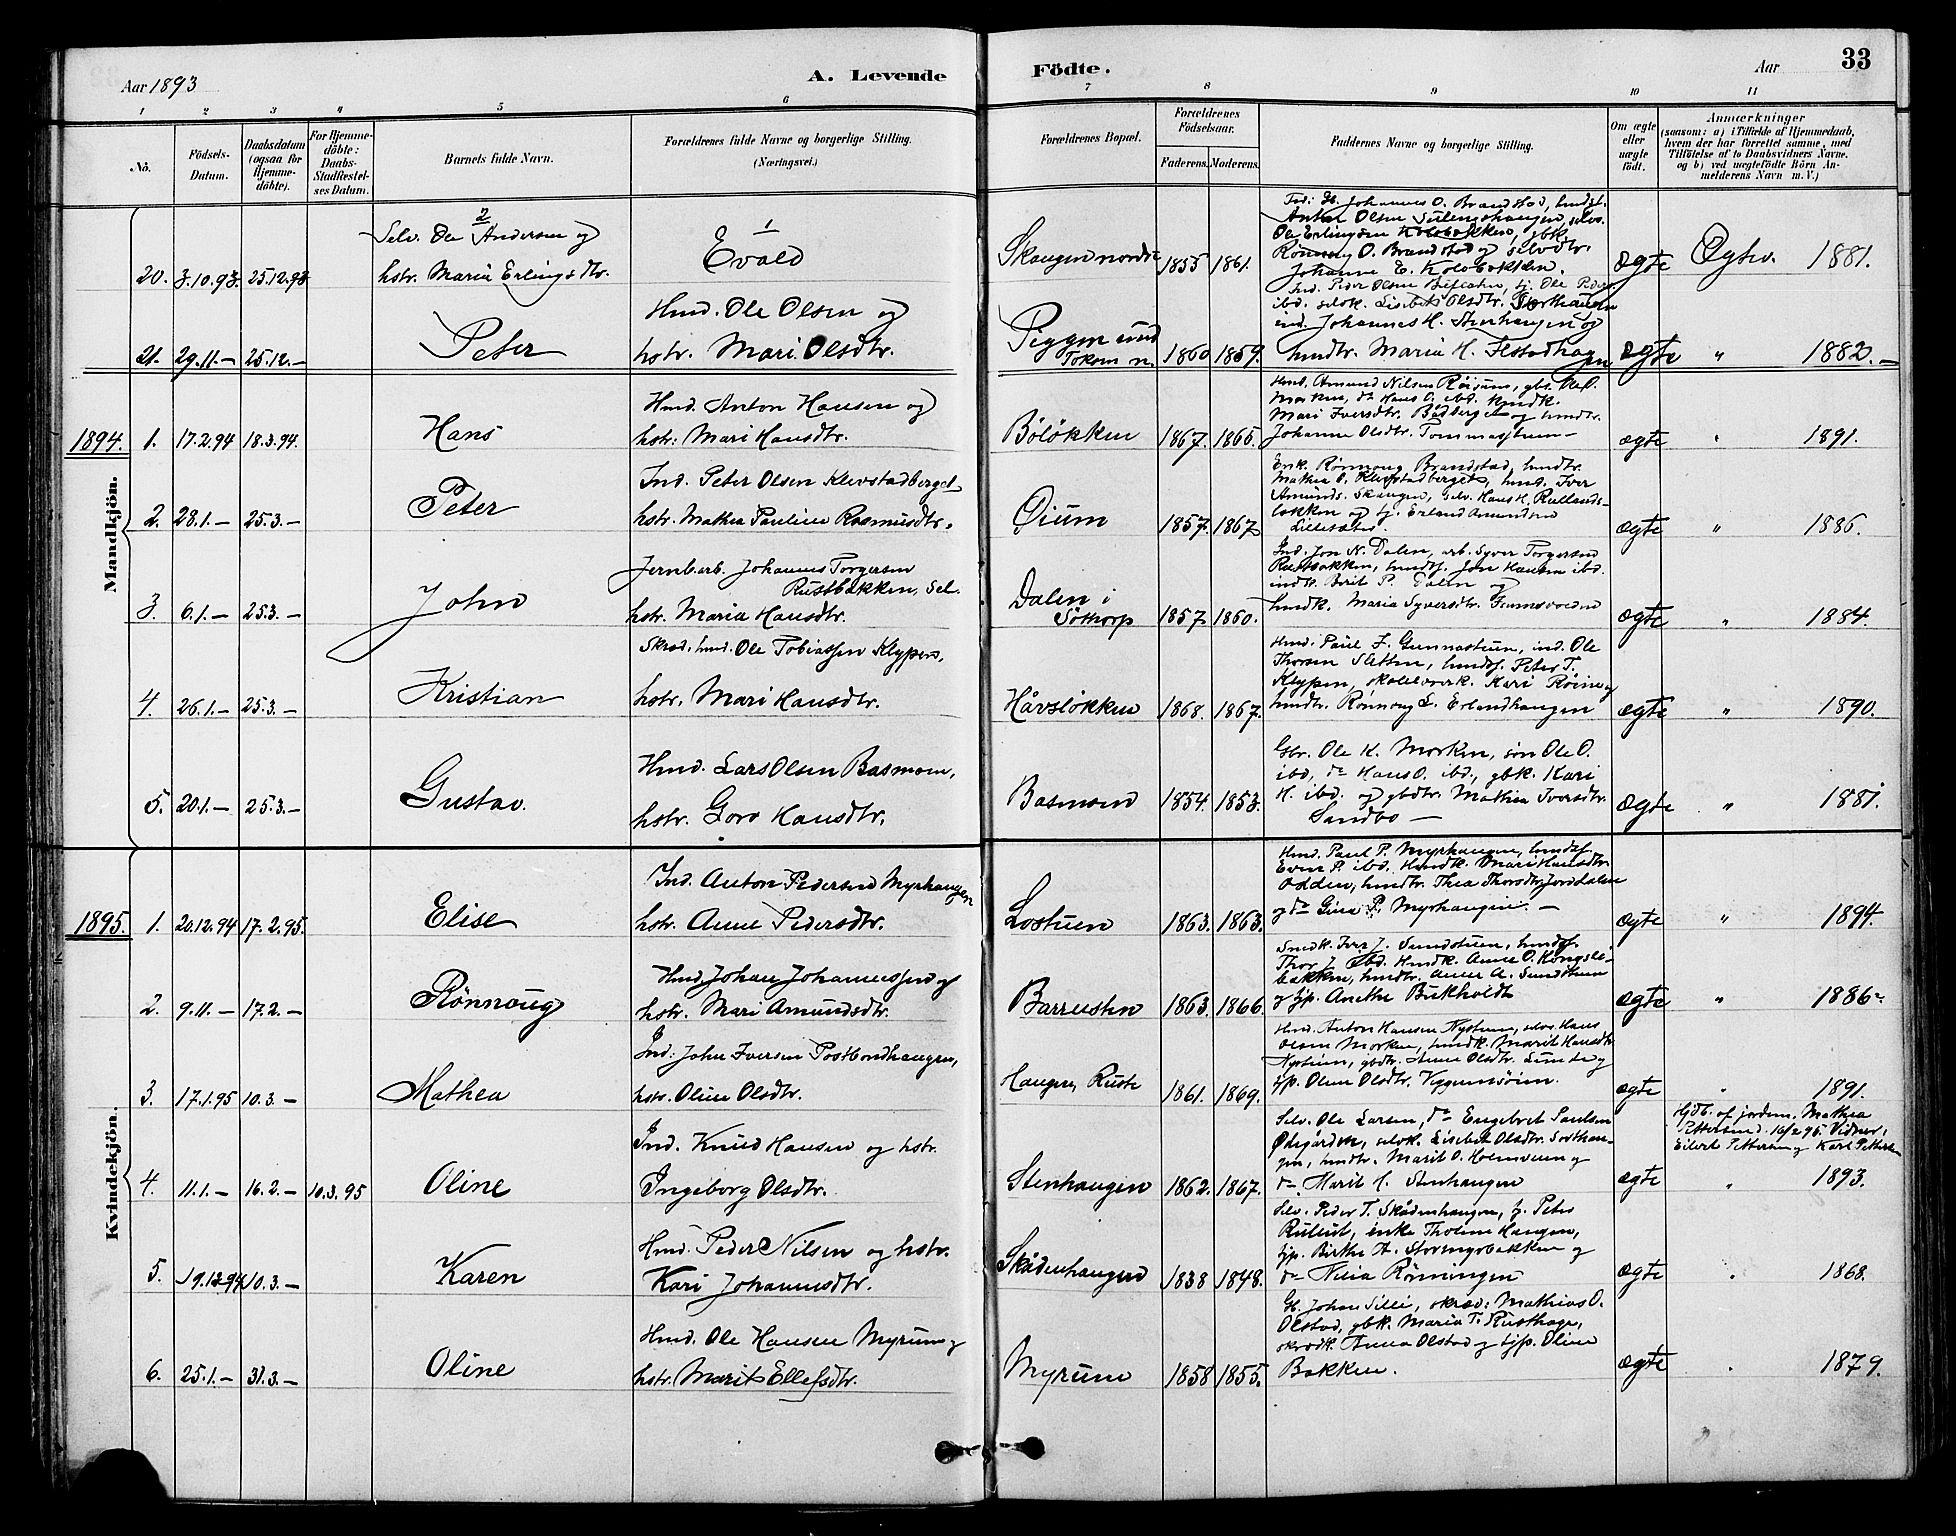 Aar 1893
A. Levende
Födte.
Aar
33
1 2 3 4 5 6 7 8 9 10 11
Nö.
Födsels-
Datum.
Daabsdatum
(ogsaa for
Hjemme-
döbte).
For Hjemme-
döbte:
Daabs-
Stadfæstel-
ses Datum.
Barnets fulde Navn.
Forældrenes fulde Navne og borgerlige Stilling.
(Næringsvei.)
Forældrenes Bopæl.
Forældrenes
Födselsaar.
Faderens.
Moderens.
Faddernes Navne og borgerlige Stilling.
Om ægte
eller
uægte
født.
Anmærkninger
(saasom: a) i Tilfælde af Hjemmedaab,
hvem der har forrettet samme, med
Tilföielse af to Daabsvidners Navne.
og b) ved uægtefödte Börn An-
melderens Navn m. V.)
20. 3.10.93. 25.12.93
2
Selv. Ole Andersen og
hstr. Maria Erlingsdtr.
1
Evald
Skaugen nordre 1855 1861.
Johannes O. Brandstad,
Ole Erlingsen Kolobakken, gbk.
Rønnog O. Brandstad og selvdtr.
Johanne E. Kolobakken.
ægte Ogsv. 1881.
21. 29.11.– 25.12.–
Peter
Hmd. Ole Olsen og
hstr. Mari Olsdtr.
Piggen
1860 1859.
Ind. Peder Olsen
ibd. selvk. Lisbet Olsdtr.
ind. Johannes H. Stenhaugen og
hmdtr. Maria H.
ægte " 1882.–
1894.
Mandkjön.
1. 17.2.94 18.3.94.
Hans
Hmd. Anton Hansen og
hstr: Mari Hansdtr.
Böløkken 1867. 1865.
Hmd. Amund Nilsen Røisum, gbs. Ole O.
Morken, do Hans O. ibd. hmdk.
Mari Iversdtr. Bådberget og hmdtr.
Johanne Olsdtr. Tommasstuen –
ægte " 1891.
2. 28.1.– 25.3.–
Peter
Ind. Peter Olsen Klevstadberget
hstr. Mathea Pauline Rasmusdtr.
Øium 1857. 1867
Enk. Rønnoug Brandstad, hmdtr.
Mathea O. Klevstadberget, hmd. Iver
Amunds. Skaugen, selv. Hans H. Rullands-
løkken og tj. Erland Amundsen
Lillesæter.
ægte " 1886.
3. 6.1.– 25.3.–
John
Jernb.arb. Johannes Torgersen
Rustbakken, Sel.
hstr. Maria Hansdtr.
Dalen i
Söttorp 1857 1860.
Ind. Jon N. Dalen, arb. Syver Torgersen
Rustbakken, hmds. Jon Hansen ibd.
indk. Berit P. Dalen og
hmdk. Maria Syversdtr.
ægte " 1884.
4. 26.1.– 25.3.–
Kristian
Skræd. hmd. Ole Tobiassen Klypen,
hstr. Mari Hansdtr.
Håvsløkken 1868. 1867.
Hmd. Paul J. Gunnastuen, ind. Ole
Thorsen Sletten, hmds. Peter T.
Klypen, Kari Røine og
hmdtr. Rønnoug L. Erlandhaugen
ægte " 1890.
5. 20.1.– 25.3.–
Gustav.
Hmd. Lars Olsen Basmoen,
hstr. Goro Hansdtr.
Basmoen 1854. 1853.
Gbr. Ole H. Morken, søn Ole O.
ibd, do Hans O. ibd., gbk. Kari
H. ibd. og gbdtr. Mathea Iversdtr.
Sandbo –
ægte " 1881.
1895.
Kvindekjön.
1. 20.12.94 17.2.95.
Elise
Ind. Anton Pedersen Myrhaugen
hstr. Anne Pedersdtr.
Lostuen 1863. 1863.
Hmd. Paul P. Myrhaugen, hmds.
Even P. ibd. Hmdk. Mari Hansdtr.
Odden, hmdtr. Thea Thorsdtr. Jorddalen
og do Gina P. Myrhaugen. –
ægte " 1894.
2. 9.11.– 17.2.–
Rönnoug
Hmd. Johan Johannessen og
hstr. Mari Amundsdtr.
1863. 1866.
Smedk. Iver J. Sundstuen, hmds.
Thor J. ibd. Hmdk. Anne O. Kongsli-
bakken, hmdtr. Anne A. Sundstuen
og tjp. Anethe Bukholdt
ægte " 1886.
3. 17.1.95 10.3.–
Mathea
Ind. John Iversen Postbondhaugen,
hstr. Oline Olsdtr.
Haugen, Ruste 1861. 1869.
Hmd. Anton Hansen Nystuen, selv. Hans
Olsen Morken, hmdk. Marit Hansdtr.
Nystuen, gbdtr. Anne Olsdtr. Lunde og
tjp. Oline Olsdtr. Viggumsøien.
ægte " 1891.
4. 11.1.– 16.2.– 10.3.95
Oline
Ind. Knud Hansen og hstr.
Ingeborg Olsdtr.
Stenhaugen 1862. 1867.
Selv. Ole Larsen, do Engebret Paulsen
Ødegården, selvk. Lisebet Olsdtr. Sorthau-
gen, hmdtr. Marit O. Holmveum og
do. Marit H. Stenhaugen
ægte " 1893.
Hjdb. af jordem. Mathea
Pettersen d. 16/2 95. Vidner:
Eilert Pettersen og Karl Pettersen
5. 19.12.94 10.3.–
Karen
Hmd. Peder Nilsen og hstr.
Kari Johannesdtr.
Skådenhaugen 1838 1848.
Selv. Peder T. Skådenhaugen, tj. Peter
Rulust, enke Tholine Haugen,
tjp. Birthe A. Storengsbakken og
do Nilia Rønningen
ægte " 1868.
6. 25.1.– 31.3.–
Oline
Hmd. Ole Hansen Myrum og
hstr. Marit Ellefsdtr.
Myrum 1858 1855.
Gb. Johan Silli, skræd: Mathias O.
Olstad, gbk. Maria T. Rusthage,
skrædk. Anna Olstad og tjp. Oline
Bakken.
ægte " 1879.